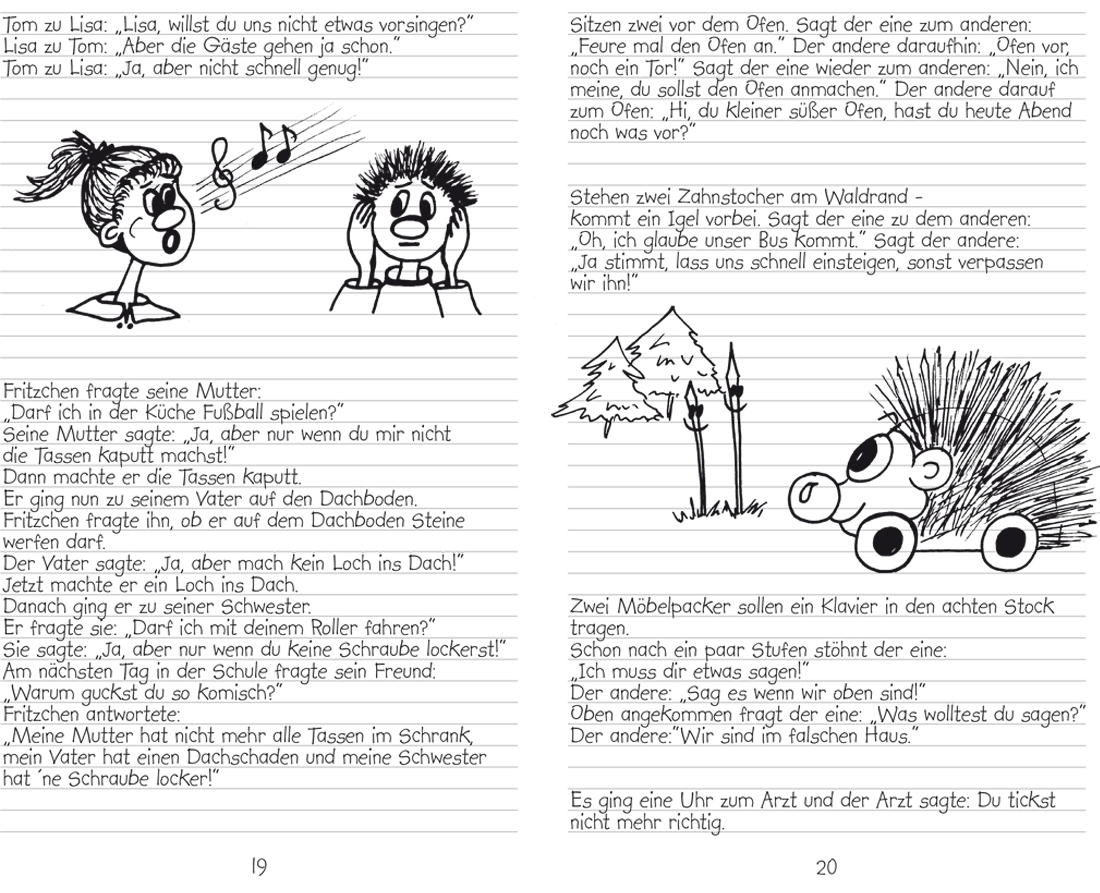 Tom zu Lisa: „Lisa, willst du uns nicht etwas vorsingen?“
Lisa zu Tom: „Aber die Gäste gehen ja schon.“
Tom zu Lisa: „Ja, aber nicht schnell genug!“
Fritzchen fragte seine Mutter:
„Darf ich in der Küche Fußball spielen?“
Seine Mutter sagte: „Ja, aber nur wenn du mir nicht
die Tassen kaputt machst!“
Dann machte er die Tassen kaputt.
Er ging nun zu seinem Vater auf den Dachboden.
Fritzchen fragte ihn, ob er auf dem Dachboden Steine
werfen darf.
Der Vater sagte: „Ja, aber mach kein Loch ins Dach!“
Jetzt machte er ein Loch ins Dach.
Danach ging er zu seiner Schwester.
Er fragte sie: „Darf ich mit deinem Roller fahren?“
Sie sagte: „Ja, aber nur wenn du keine Schraube lockerst!“
Am nächsten Tag in der Schule fragte sein Freund:
„Warum guckst du so komisch?“
Fritzchen antwortete:
„Meine Mutter hat nicht mehr alle Tassen im Schrank,
mein Vater hat einen Dachschaden und meine Schwester
hat ´ne Schraube locker!“
19
Sitzen zwei vor dem Ofen. Sagt der eine zum anderen:
„Feure mal den Ofen an.“ Der andere daraufhin: „Ofen vor,
noch ein Tor!“ Sagt der eine wieder zum anderen: „Nein, ich
meine, du sollst den Ofen anmachen.“ Der andere darauf
zum Ofen: „Hi, du kleiner süßer Ofen, hast du heute Abend
noch was vor?“
Stehen zwei Zahnstocher am Waldrand –
kommt ein Igel vorbei. Sagt der eine zu dem anderen:
„Oh, ich glaube unser Bus kommt.“ Sagt der andere:
„Ja stimmt, lass uns schnell einsteigen, sonst verpassen
wir ihn!“
Zwei Möbelpacker sollen ein Klavier in den achten Stock
tragen.
Schon nach ein paar Stufen stöhnt der eine:
„Ich muss dir etwas sagen!“
Der andere: „Sag es wenn wir oben sind!“
Oben angekommen fragt der eine: „Was wolltest du sagen?“
Der andere:“Wir sind im falschen Haus.“
Es ging eine Uhr zum Arzt und der Arzt sagte: Du tickst
nicht mehr richtig.
20